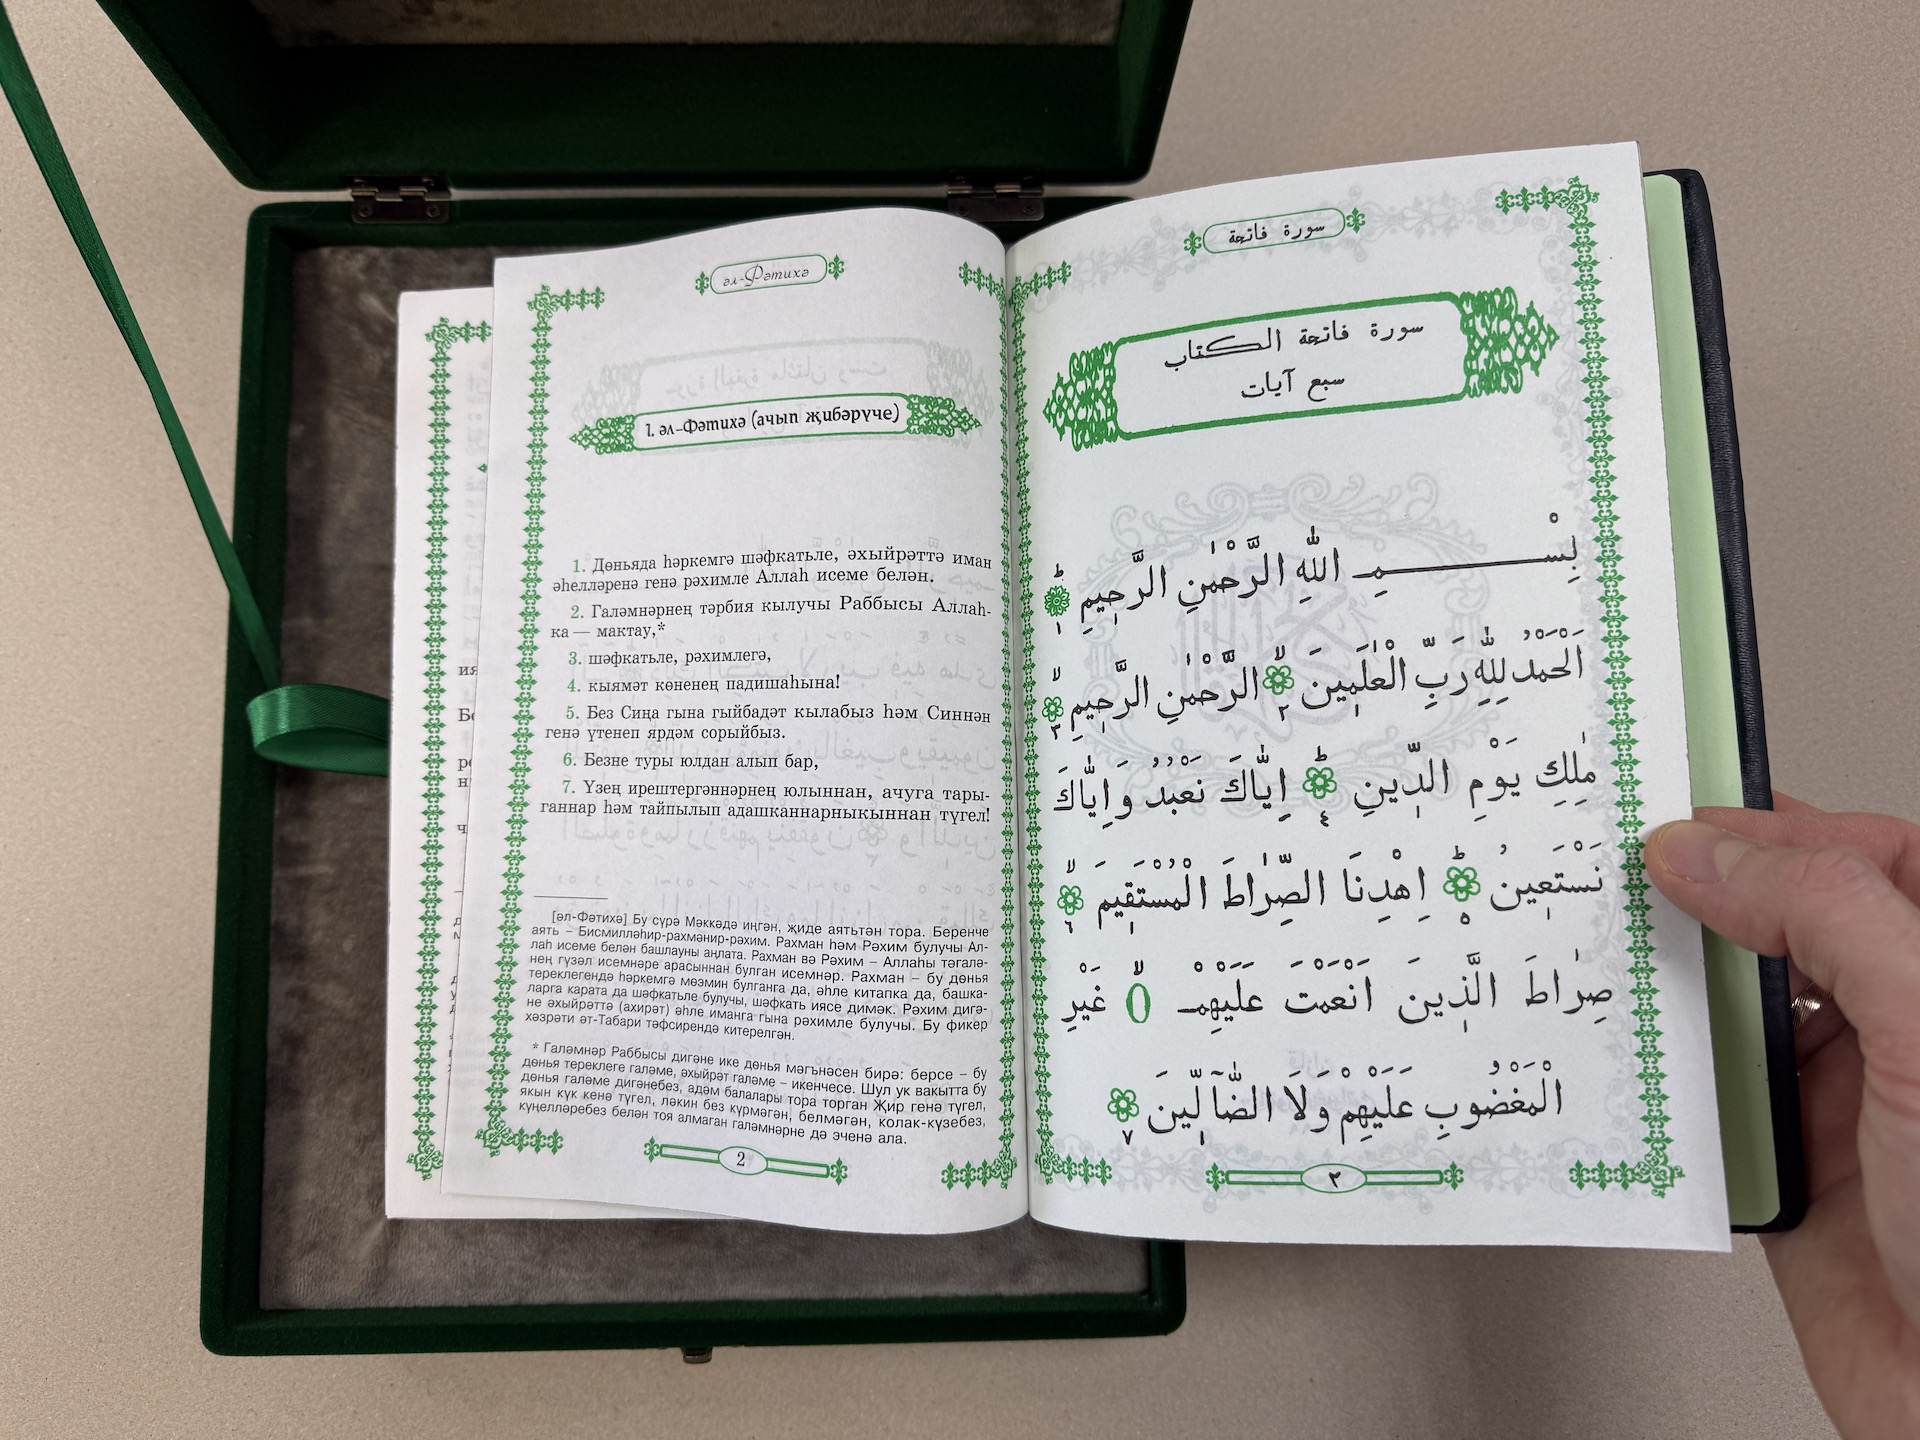 әл-Фәтихә
1. әл-Фәтихә (ачып җибәрүче)
1. Дөньяда һәркемгә шәфкатьле, әхыйрәттә иман
әһелләренә генә рәхимле Аллаһ исеме белән.
2. Галәмнәрнең тәрбия кылучы Раббысы Аллаһ-
ка — мактау,*
3. шәфкатьле, рәхимлегә,
4. кыямәт көненең падишаһына!
5. Без Сиңа гына гыйбадәт кылабыз һәм Синнән
генә үтенеп ярдәм сорыйбыз.
6. Безне туры юлдан алып бар,
7. Үзең ирештергәннәрнең юлыннан, ачуга тары-
ганнар һәм тайпылып адашканнарныкыннан түгел!
[әл-Фәтихә] Бу сүрә Мәккәдә иңгән, җиде аятьтән тора. Беренче
аять – Бисмилләһир-рахмәнир-рәхим. Рахман һәм Рәхим булучы Ал-
лаһ исеме белән башлауны аңлата. Рахман вә Рәхим – Аллаһы тәгалә-
нең гүзәл исемнәре арасыннан булган исемнәр. Рахман – бу дөнья
тереклегендә һәркемгә мөэмин булганга да, әһле китапка да, башка-
ларга карата да шәфкатьле булучы, шәфкать иясе димәк. Рәхим дигә-
не әхыйрәттә (ахирәт) әһле иманга гына рәхимле булучы. Бу фикер
хәзрәти әт-Табари тәфсирендә китерелгән.
* Галәмнәр Раббысы дигәне ике дөнья мәгънәсен бирә: берсе – бу
дөнья тереклеге галәме, әхыйрәт галәме – икенчесе. Шул ук вакытта бу
дөнья галәме дигәнебез, адәм балалары тора торган Җир генә түгел,
якын күк кенә түгел, ләкин без күрмәгән, белмәгән, колак-күзебез,
күңелләребез белән тоя алмаган галәмнәрне дә эченә ала.
2
سورة فاتحة
سورة فاتحة الكتاب
سبع آيات
بِسْــــــمِ اللّٰهِ الرَّحْمٰنِ الرَّحٖيمِ ١
اَلْحَمْدُ لِلّٰهِ رَبِّ الْعٰلَمٖينَ ٢ الرَّحْمٰنِ الرَّحٖيمِ ٣
مٰلِكِ يَوْمِ الدّٖينِ ٤ اِيَّاكَ نَعْبُدُ وَاِيَّاكَ
نَسْتَعٖينُ ٥ اِهْدِنَا الصِّرٰاطَ الْمُسْتَقٖيمَ ٦
صِرٰاطَ الَّذٖينَ اَنْعَمْتَ عَلَيْهِمْ غَيْرِ
الْمَغْضُوبِ عَلَيْهِمْ وَلَا الضَّآلّٖينَ ٧
٣